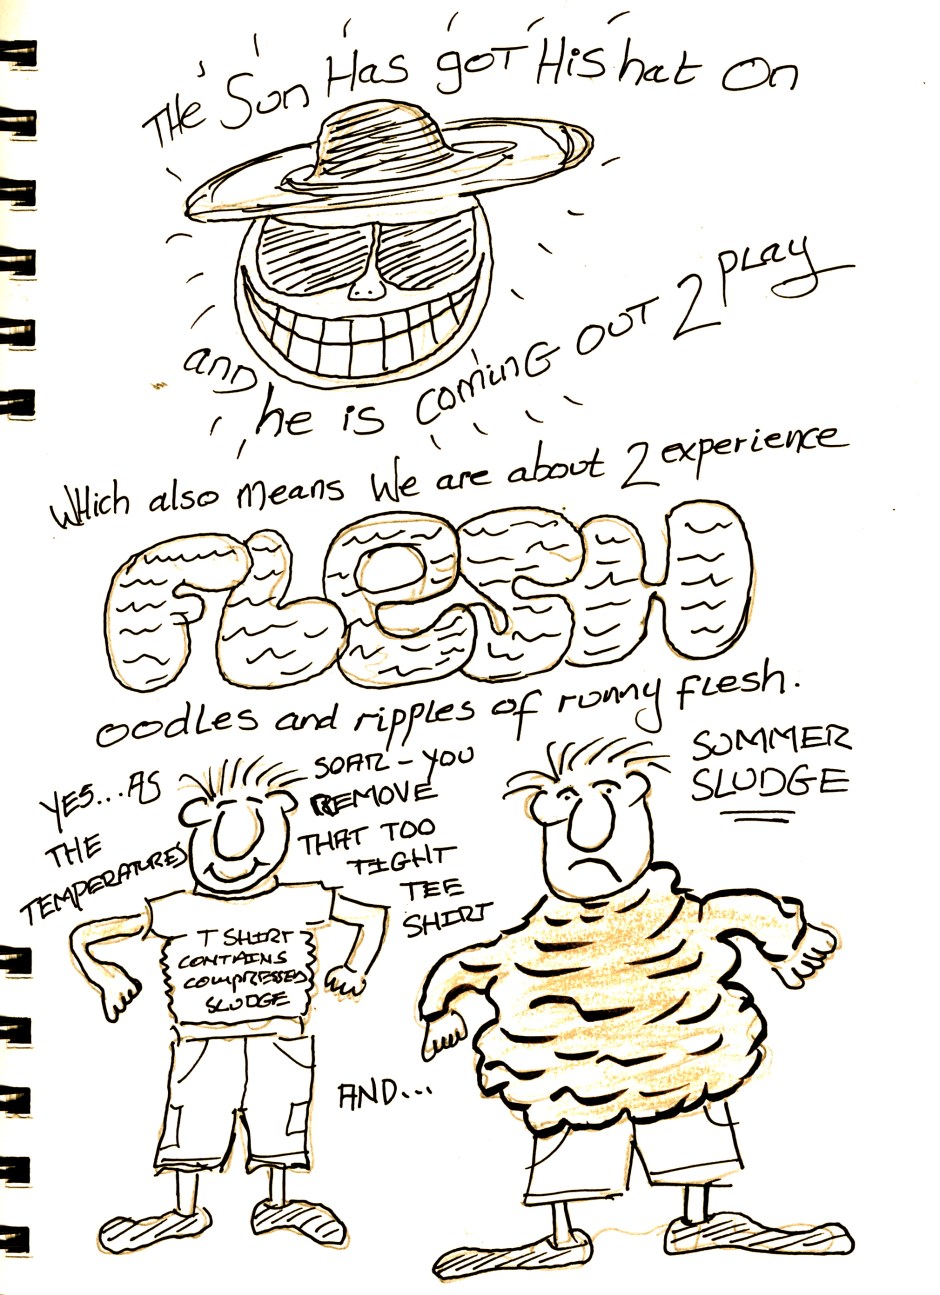 THE SUN HAS GOT HIS hat On
and he is coming OUT 2 play
Which also means We are about 2 experience
FLESH
oodles and ripples of runny flesh.
YES...AS
THE
TEMPERATURES
SOAR - YOU
REMOVE
THAT TOO
TIGHT
TEE
SHIRT
SUMMER
SLUDGE
T SHIRT
CONTAINS
COMPRESSED
SLUDGE
AND...